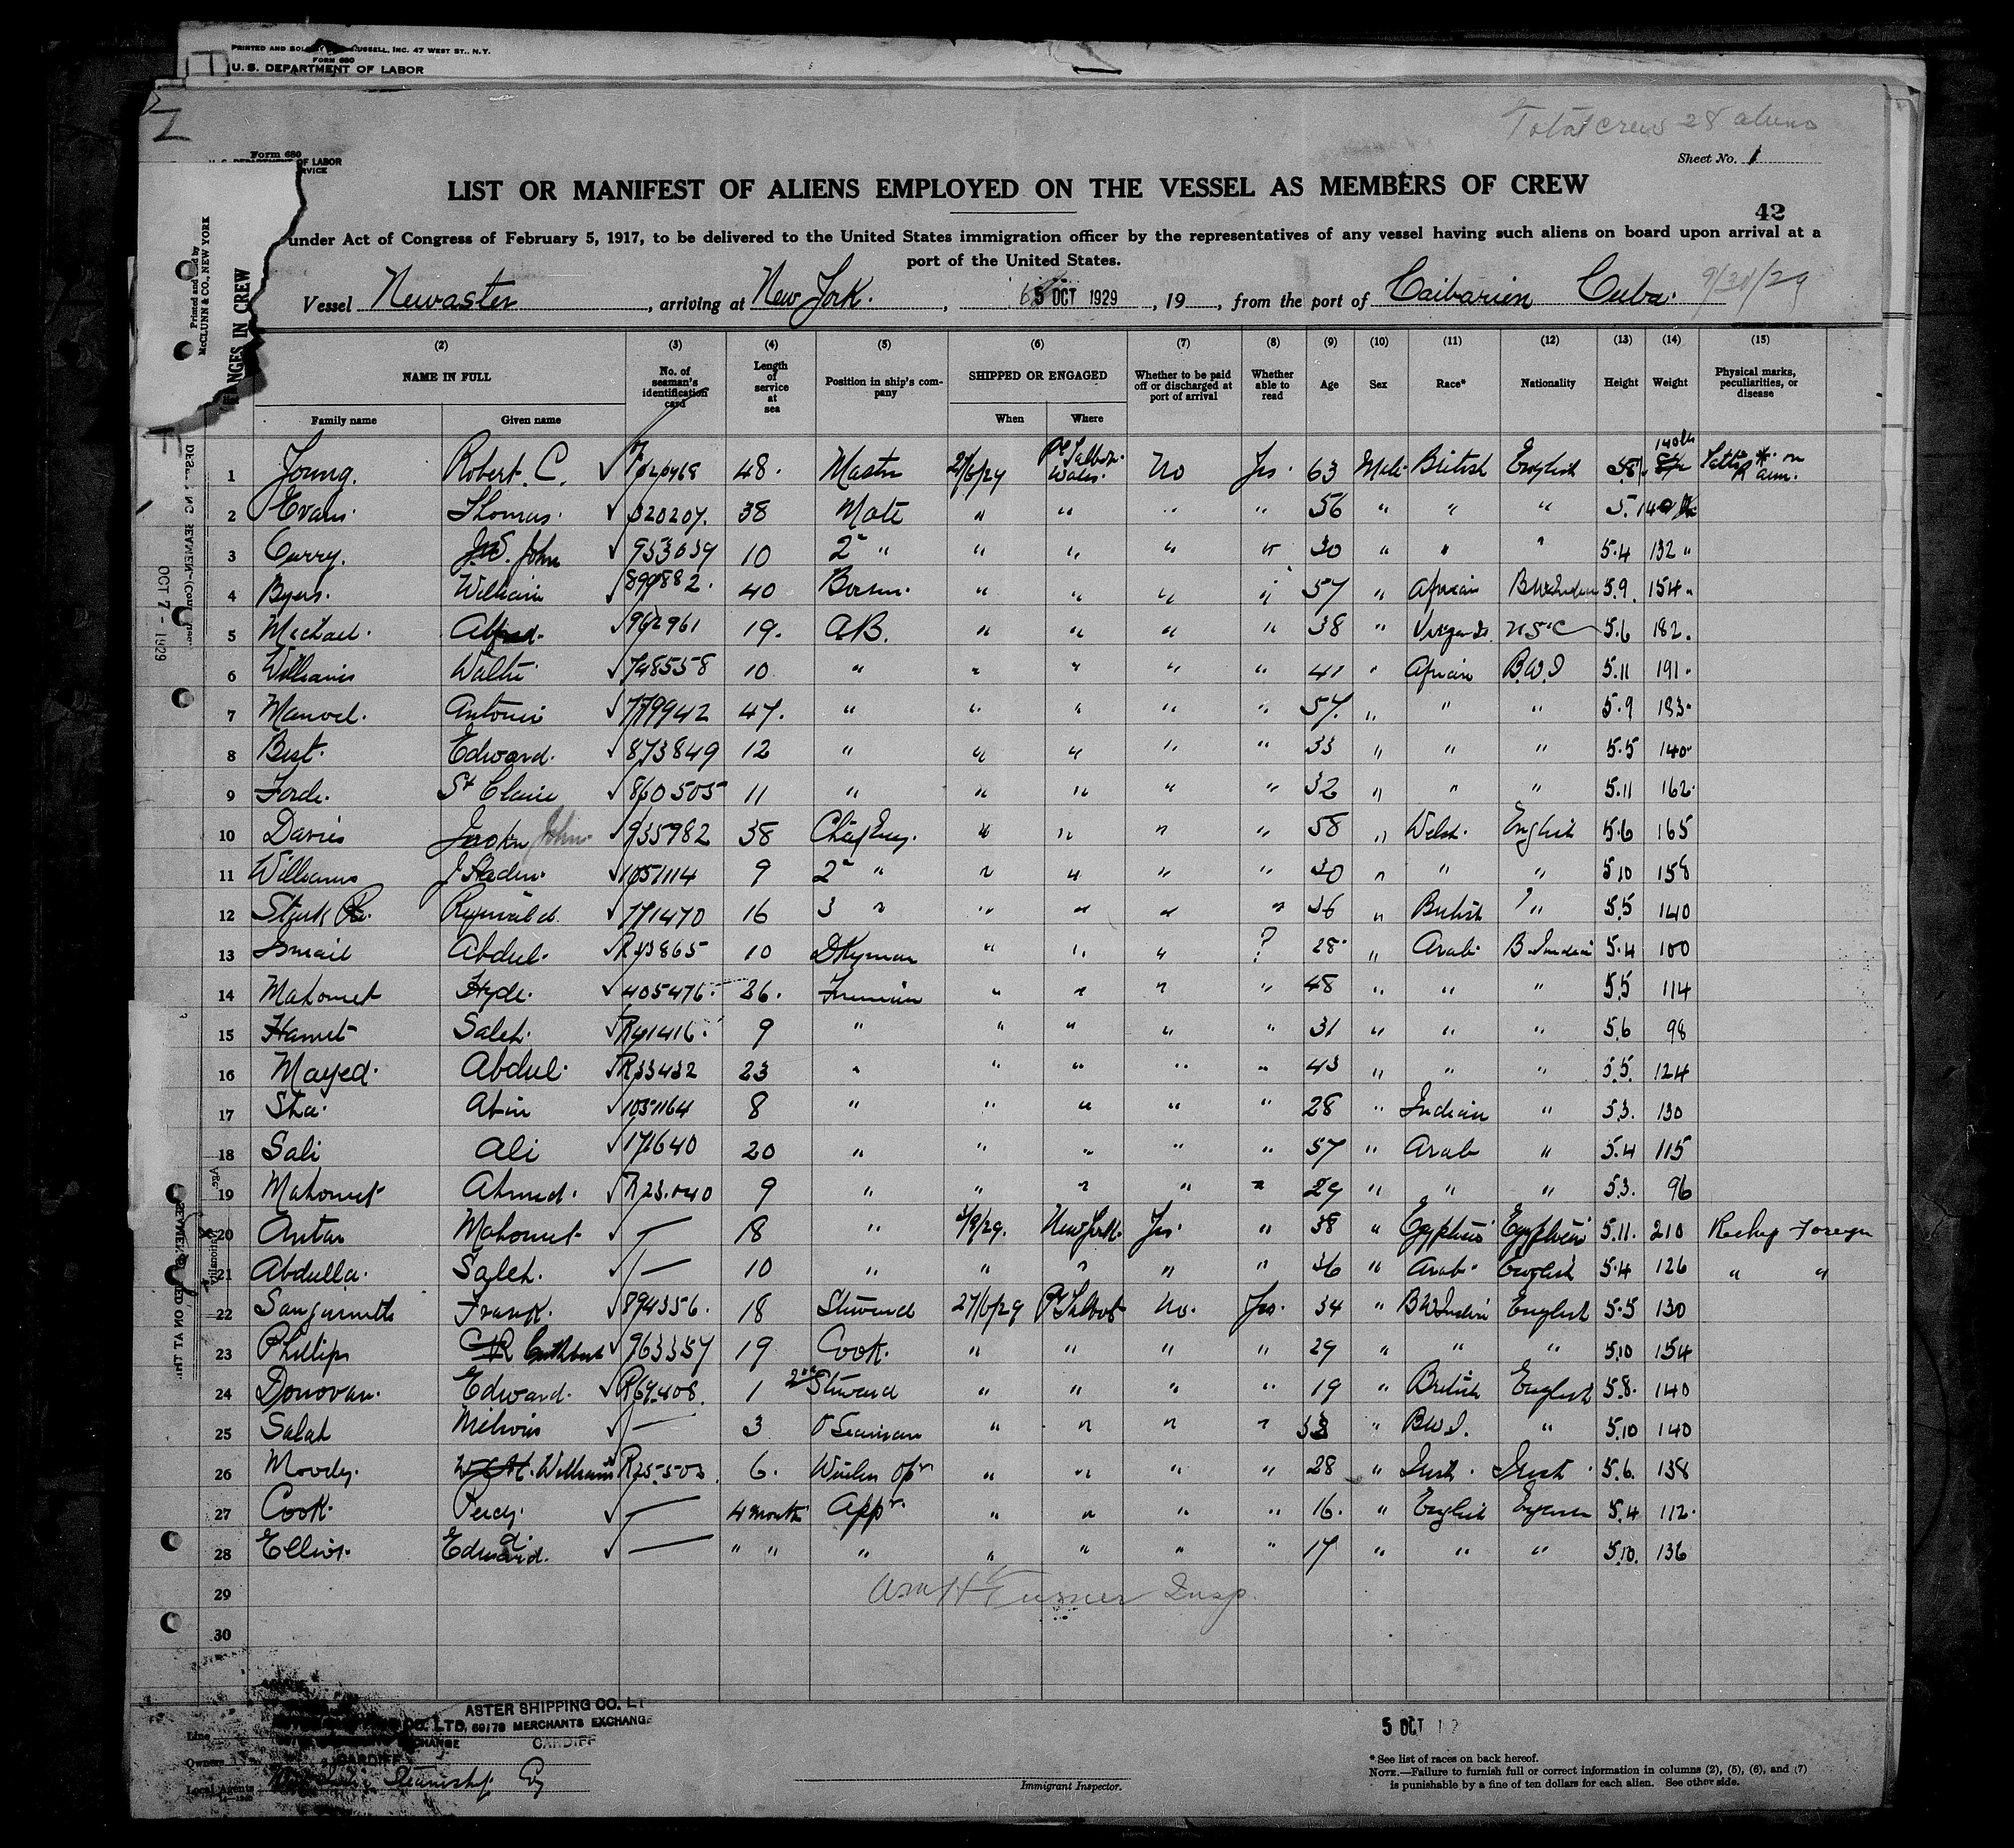 PRINTED AND SOLD BY RUSSELL, INC. 47 WEST ST., N.Y.
FORM 680
U. S. DEPARTMENT OF LABOR
Total crew 28 aliens
Form 680
U. S. DEPARTMENT OF LABOR
Sheet No. 1
LIST OR MANIFEST OF ALIENS EMPLOYED ON THE VESSEL AS MEMBERS OF CREW
42
under Act of Congress of February 5, 1917, to be delivered to the United States immigration officer by the representatives of any vessel having such aliens on board upon arrival at a
port of the United States.
Vessel Newaster, arriving at New York., 5 OCT 1929, 19, from the port of Caibarien Cuba. 9/30/29
Printed and sold by
McCLUNN & CO., NEW YORK
ANGES IN CREW
OCT 7 - 1929
(2) (3) (4) (5) (6) (7) (8) (9) (10) (11) (12) (13) (14) (15)
NAME IN FULL
Family name Given name
No. of seaman's identification card
Length of service at sea
Position in ship's company
SHIPPED OR ENGAGED
When Where
Whether to be paid off or discharged at port of arrival
Whether able to read
Age Sex Race* Nationality Height Weight
Physical marks, peculiarities, or disease
1 Young. Robert. C. 48. Master Pt Talbot. Wales. No Yes. 63 Male British English 140 lbs on arm.
2 Evans. Thomas. 320207. 38 Mate " " " " 56 " " " 5. 140
3 Curry. John 953039 10 2nd " " " " " 30 " " " 5.4 132 "
4 Byers. William 899882. 40 Bosun. " " " " 57 " African B W Indian 5.9. 154 "
5 Michael. Alfred. 962961 19. AB. " " " " 38 " U.S.C 5.6 182.
6 Williams Walter 748558 10 " " " " " 41 " African B.W.I 5.11 191.
7 Manoel. Antonio 779942 47. " " " " " 57. " " " 5.9 183.
8 Best. Edward. 873849 12 " " " " " 33 " " " 5.5 140.
9 Forde. St Claire 860505 11 " " " " " 32 " " " 5.11 162.
10 Davies John 935982 38 Chief Eng. " " " " 58 " Welsh. English 5.6 165
11 Williams 1051114 9 2nd " " " " " 30 " " " 5.10 158
12 Stark Reginald. 771470 16 3 " " " " " 36 " British " 5.5 140
13 Ismail Abdul. R43865 10 DKeyman " " " ? 28. " Arab. B Indian 5.4 100
14 Mahomet Hyde. 405476. 26. Fireman " " " " 48 " " " 5.5 114
15 Hamet Saleh. R41416. 9 " " " " " 31 " " " 5.6 98
16 Mayed. Abdul. R33432 23 " " " " " 43 " " " 5.5. 124
17 Sha. Abin 1051164 8 " " " " " 28 " Indian " 5.3. 130
18 Sali Ali 171640 20 " " " " " 57 " Arab " 5.4 115
19 Mahomet Ahmed. R23.040 9 " " " " " 29 " " " 5.3. 96
20 Antar Mahomet — 18 " /9/29. New York. Yes. " 38 " Egyptian Egyptian 5.11. 210 Reship Foreign
21 Abdulla. Saleh. — 10 " " " " " 36 " Arab. English 5.4 126 " "
22 Frank. 894356. 18 Steward 27/6/29 Pt Talbot No. Yes. 34 " B W Indian English 5.5 130
23 Phillips Cuthbert 963357 19 Cook. " " " " 29 " " " 5.10 154
24 Donovan. Edward. R69408. 1 2nd Steward " " " " 19 " British English 5.8. 140
25 Salah — 3 O Seaman " " " " " B.W.I. " 5.10 140
26 Moody. William R25503. 6. Wireless Opr " " " " 28 " Irish. Irish. 5.6. 138
27 Cook. Percy. — 4 months Appr. " " " " 16. " English 5.4 112.
28 Elliot. Edward. — " " " " " " " 17 " " " 5.10. 136
29 H Turner Insp.
30
ASTER SHIPPING CO. LT
CO. LTD, 69/78 MERCHANTS EXCHANGE
CHANGE CARDIFF
CARDIFF
Line
Owners
Local Agents Steamship Co
5 OCT
Immigrant Inspector.
* See list of races on back hereof.
NOTE.—Failure to furnish full or correct information in columns (2), (5), (6), and (7)
is punishable by a fine of ten dollars for each alien. See other side.